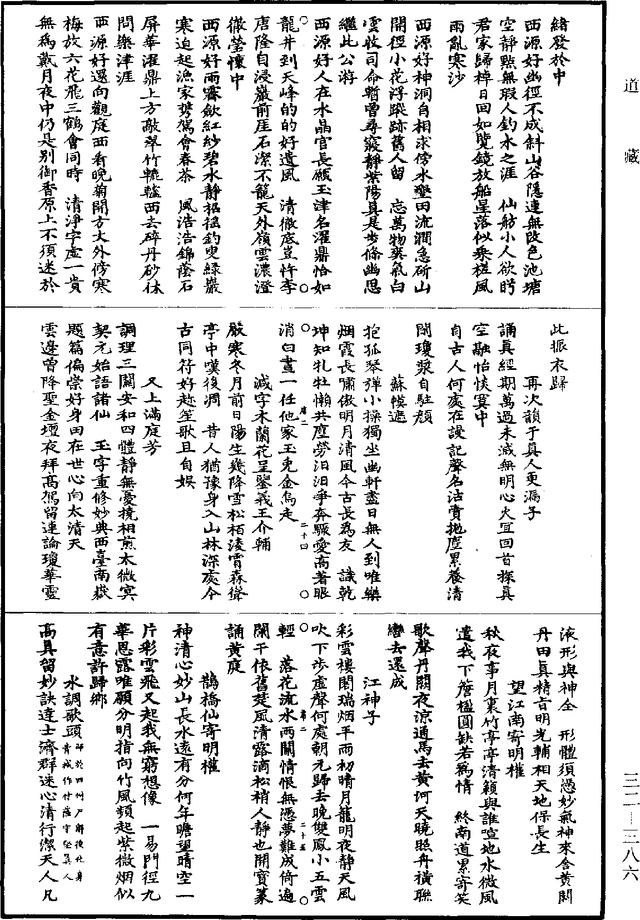 道藏
緒發於中
西源好幽徑不成斜山谷隱連無改色池塘
空靜點無瑕人釣水之涯　仙舫小人欲眄
君家歸棹日回如覽鏡放船星落似乘槎風
雨亂寒沙
西源好神洞自相求傍水墾田流澗急斫山
開徑小花浮蹤跡舊人留　忘萬物奕氣白
雲收司命暫曾尋寢靜紫陽真是步絛幽思
繼此公游
西源好人在水晶宮長願玉津名濯鼎恰如
龍井到天峰的的好遺風　清徹底豈忤李
唐隆自浸巖前崖石潔不籠天外嶺雲濃澄
徹瑩懷中
西源好雨霽歛紅紗碧水靜招徭釣叟綠巖
寒迫起漁家驾駕會春茶　風浩浩錦蔭石
屏華濯鼎上方敲翠竹轆轤西去碎丹砂休
問樂津涯
西源好還向觀庭西看晚菊開方大外傍寒
梅放六花飛三鶴會同時　清淨字虛一貴
無為戴月夜中仍是別御香原上不須迷於
此振衣歸
再次韻于真人更漏子
誦真經期萬過未滅無明心火宜回首探真
空融怡恢寞中
自古人何處在謾記聲名沽賣拋塵累養清
閑瓊漿自駐顏
蘇幙遮
抱孤琴彈小操獨坐幽軒盡日無人到唯樂
烟霞長嘯傲明月清風今古長為友　識乾
坤知牝牡懶共塵勞汩汩爭奔驟愛高著眼
消白晝一任他家玉兔金烏走
減字木蘭花呈鑒義王介輔
嚴寒冬月前日陽生幾降雪松栢淩霄森聳
亭中嘆後凋　昔人猶豫身入山林深處今
古同符好赴笙歌且自娛
又上滿庭芳
調理三關安和四體靜無憂撓相煎太微寞
契元始語諸仙　玉字重修妙典西臺南嶽
題篇偏崇好身田在世心向太清天
雲邊曾降聖金壇夜拜高駕留連論瓊華靈
液形與神全　形體須憑妙氣神來舍黄閼
丹田真精旨明光輔相天地保長生
望江南寄明權
秋夜事月裏竹亭亭清籟與誰喧地水微風
遣我下簷楹圓缺若為情　終南道累寄笑
歌聲丹關夜涼通馬去黄河天曉照丹橫聯
巒去還成
江神子
彩雲樓閣瑞烟平雨初晴月籠明夜静天風
吹下步虛聲何處朝元歸去晚雙鳳小五雲
輕　落花流水兩關情恨無憑夢難成倚遍
闌干依舊楚風清露滴松梢人靜也開寳篆
誦黄庭
鵲橋仙寄明權
神清心妙山長水遠有分何年瞻望晴空一
片彩雲飛又起我無窮想像　一易門徑九
華恩露唯願分明指向竹風頻起紫微烟似
有意許歸鄉
水調歌頭
高真留妙訣達士濟群迷心清行潔天人凡
三二—三八六